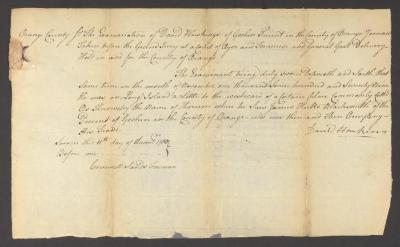 Orange County ss The Examination of David Hawkings of Goshen Precinct in the County of Orange Yeoman
Taken before the Goshen Jurey at a Court of Oyer and Terminer and General Goal Delivery
Held in and for the County of Orange
The Examinant being duly sworn Deposeth and Saith that
some time in the month of November one thousand Seven hundred and Seventy
He was on Long Island a little to the westward of a Certain place Commonly Called
Or Known by the Name of when he Saw James of the
Precinct of Goshen in the County of Orange who was then and there
His Trade
David Hawkins
Sworn this 11th day of
Before me